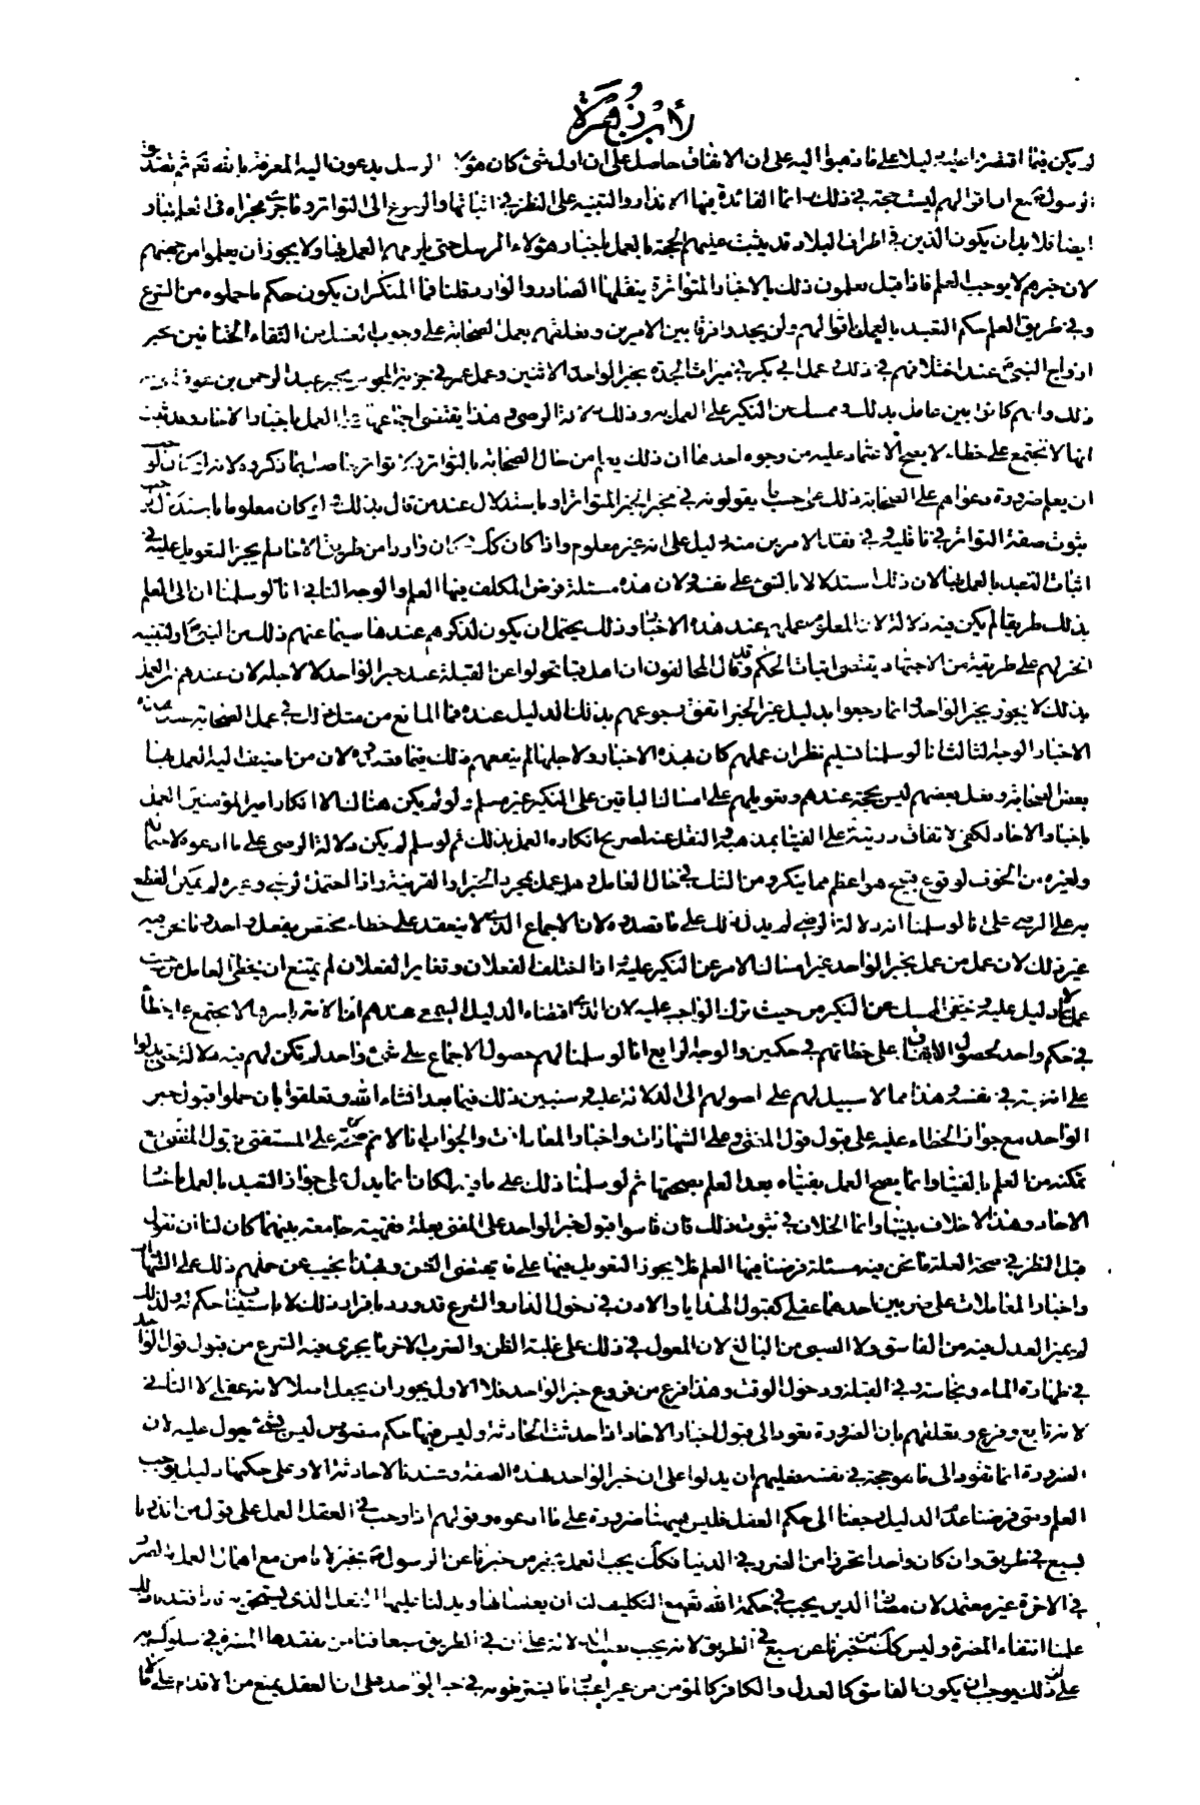 لابن زهرة
لم يكن فيما اقتضرا عليه دليلا على ما ذهبوا اليه على ان الاتفاق حاصل على ان اول شئ كان هؤلاء الرسل يدعون اليه المعرفة بالله تعالى ثم تصديق
رسوله مع ان اقوالهم ليست حجة في ذلك انما الفائدة فيها الانذار والتنبيه على النظر في اثباتها والرجوع الى التواتر وما جرى مجراه في العلم بها و
ايضا فلا بد ان يكون الذين في اطراف البلاد قد يثبت عليهم الحجة بالعمل باخبار هؤلاء الرسل حتى يلزمهم العمل بها ولا يجوز ان يعلموا من جهتهم
لان خبرهم لا يوجب العلم فاذا قيل يعلمون ذلك بالاخبار المتواترة ينقلها الصادر والوارد قلنا فما المنكر ان يكون حكم ما حملوه من الشرع
وفي طريق العلم حكم التعبد بالعمل باقوالهم ولن يجدوا فرقا بين الامرين وتعلقهم بعمل الصحابة على وجوب الغسل من التقاء الختانين بخبر
ازواج النبي عند اختلافهم في ذلك وعمل ابي بكر في ميراث الجدة بخبر الواحد الاثنين وعمل عمر في جزية المجوس بخبر عبد الرحمن بن عوف
ذلك وانهم كانوا بين عامل بذلك وممسك عن النكير على العمل به وذلك دلالة الرضى به وهذا يقتضى اجماعها على العمل باخبار الاحاد وقد ثبت
انها لا تجتمع على خطاء لا يصح الاعتماد عليه من وجوه احدها ان ذلك يعلم من حال الصحابة بالتواتر
ان يعلم ضرورة دعواهم على الصحابة ذلك على حسب ما يقولونه في مخبر الخبر المتواتر او باستدلال عند من قال بذلك
ثبوت صفة التواتر في ناقليه وفي فقد الامرين منه دليل على انه غير معلوم واذا كان واردا من طريق الاحاد لم يجز التعويل عليه في
اثبات التعبد بالعمل بها لان ذلك استدلال بالشئ على نفسه ولان هذه مسئلة فرض المكلف فيها العلم والوجه الثاني انا لو سلمنا ان الى العلم
بذلك طريقا لم يكن فيه دلالة لان المعلوم عملهم عند هذه الاخبار وذلك يحتمل ان يكون لذكرهم عندها سماعهم ذلك من النبي او لتنبيه
الخبر لهم على طريقة من الاجتهاد يقتضى اثبات الحكم وقد قال المخالفون ان اهل قبا تحولوا عن القبلة عند خبر الواحد لا لاجله لان عندهم
بذلك لا يجوز بخبر الواحد وانما رجعوا بدليل غير الخبر اتفق رجوعهم بذلك الدليل عنده فما المانع من مثل ذلك في عمل الصحابة
الاخبار الوجه الثالث انا لو سلمنا تسليم نظر ان عملهم كان بهذه الاخبار ولاجلها لم ينفعهم ذلك فيما قصدوه لان من اضيف اليه العمل بها
بعض الصحابة وفعل بعضهم ليس بحجة عندهم وتعويلهم على امساك الباقين على النكير غير مسلم ولو لم يكن هنالك الا انكار امير المؤمنين العمل
باخبار الاحاد لكفى
ولغيره من الخوف لوقوع قبيح هو اعظم مما ينكر ومن الشك في حال العامل وهل عمل بمجرد الخبر او القرينة واذا احتمل
به على الرضى على انا لو سلمنا انه دلالة الرضى لم يدل ذلك على ما قصدوه لان الاجماع الذى لا ينعقد على خطاء مختص بفعل واحد وما نحن فيه
غير ذلك لان عمل من عمل بخبر الواحد غير امساك الامر عن النكير عليه واذا اختلف الفعلان وتغاير الفعلان لم يمتنع ان يخطئ العامل من حيث
عمل بما لا دليل عليه ويخطئ الممسك عن النكير من حيث ترك الواجب عليه لان الذي اقتضاه الدليل السمعي عندهم ان الامة باسرها لا يجتمع على خطأ
في حكم واحد لحصول الاتفاق على خطائهم في حكمين والوجه الرابع انا لو سلمنا لهم حصول الاجماع على شئ واحد لم تكن لهم فيه دلالة حتى يدلوا
على انه حجة في نفسه وهذا مما لا سبيل لهم على اصولهم الى الدلالة عليه وسنبين ذلك فيما بعد انشاء الله وتعلقوا بان حملوا قبول خبر
الواحد مع جواز الخطاء عليه على قبول قول المفتي وعلى الشهادات واخبار المعاملات والجواب انا لا نم صحته على المستفتى بقول المفتى مع
تمكنه من العلم بالفتيا وانما يصح العمل بفتياه بعد العلم بصحتها ثم لو سلمنا ذلك على ما فيه لكان انما يدل على جواز التعبد بالعمل باخبار
الاحاد وهذا لا خلاف بيننا وانما الخلاف في ثبوت ذلك فان قاسوا قبول خبر الواحد على المفتى بعلة فقهية جامعة بينهما كان لنا ان نقول
قبل النظر في صحة العلة ما نحن فيه مسئلة فرضنا فيها العلم فلا يجوز التعويل فيها على ما يقتضى الظن وبهذا نجيب عن حملهم ذلك على الشهادات
واخبار المعاملات على ضربين احدهما عقلي كقبول الهدايا والاذن في دخول الدار والشرع قد ورد باقرار ذلك لا باستيناف حكم له ولذلك
لم يميز العدل فيه من الفاسق ولا الصبي من البالغ لان المعول في ذلك على غلبة الظن والضرب الاخر ما يجرى فيه الشرع من قبول قول الواحد
في طهارة الماء ونجاسته وفي القبلة ودخول الوقت وهذا فرع من فروع خبر الواحد فلا الاول يجوز ان يجعل اصلا لانه عقلي لا الثاني
لانه تابع وفرع وتعلقهم بان الضرورة تقود الى قبول اخبار الاحاد اذا حدثت الحادثة وليس فيها حكم منصوص ليس بشئ يعول عليه لان
الضرورة انما تقود الى ما هو حجة في نفسه فعليهم ان يدلوا على ان خبر الواحد هذه الصفة وعندنا لا حادثة الا وعلى حكمها دليل يوجب
العلم ومتى فرضنا عدم الدليل رجعنا الى حكم العقل فليس هيهنا ضرورة على ما ادعوه وقولهم اذا وجب في العقل العمل على قول من انذرنا
بسبع في طريق وان كان واحدا تحرزا من الضرر في الدنيا فكك يجب العمل بخبر من خبرنا عن الرسول بخبر لا نامن مع اهمال العمل به الضرر
في الاخرة غير معتمد لان مضار الدين يجب في حكمة الله تعالى مع التكليف لنا ان يعلمناها ويدلنا عليها
علمنا انتفاء المضرة وليس كك من خبرنا عن سبع في الطريق لانه يجب لانه على ان في الطريق سبعا فنامن بفقدها المضرة في سلوكه
على ان ذلك يوجب ان يكون الفاسق كالعدل والكافر كالمؤمن من غير اعتبار ما يشترطونه في خبر الواحد على ان العقل يمنع من الاقدام على ما